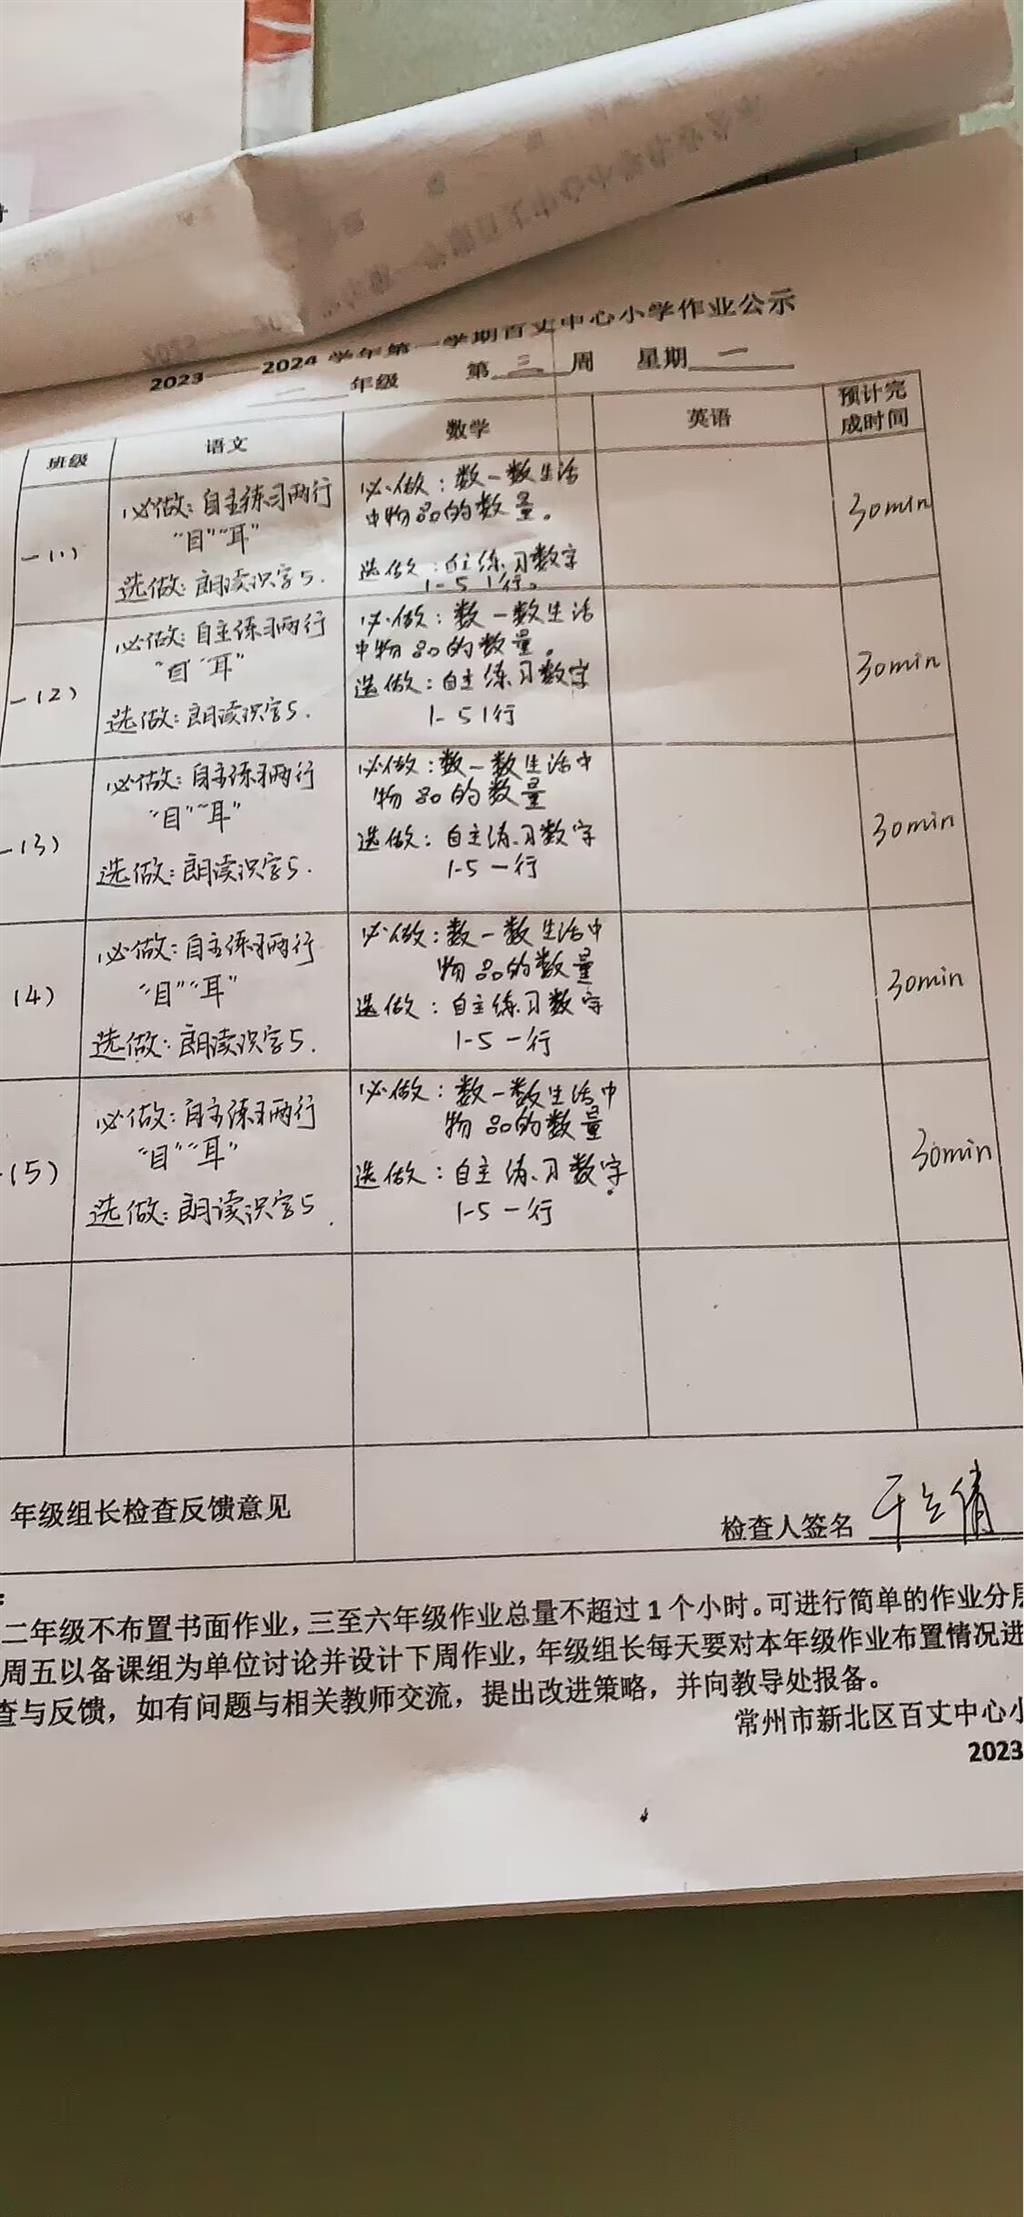 2023——2024 学年第一学期百丈中心小学作业公示
一 年级 第 三 周 星期 一
班级 语文 数学 英语 预计完
成时间
一(1)
必做：自主练习两行
“目”“耳”
选做：朗读识字5.
必做：数一数生活
中物品的数量。
选做：自主练习数字
1-5 1行。
30min
一(2)
必做：自主练习两行
“目”“耳”
选做：朗读识字5.
必做：数一数生活
中物品的数量。
选做：自主练习数字
1-5 1行
30min
一(3)
必做：自主练习两行
“目”“耳”
选做：朗读识字5.
必做：数一数生活中
物品的数量
选做：自主练习数字
1-5 一行
30min
(4)
必做：自主练习两行
“目”“耳”
选做：朗读识字5.
必做：数一数生活中
物品的数量
选做：自主练习数字
1-5 一行
30min
(5)
必做：自主练习两行
“目”“耳”
选做：朗读识字5.
必做：数一数生活中
物品的数量
选做：自主练习数字
1-5 一行
30min
年级组长检查反馈意见
检查人签名
二年级不布置书面作业，三至六年级作业总量不超过 1 个小时。可进行简单的作业分层
周五以备课组为单位讨论并设计下周作业，年级组长每天要对本年级作业布置情况进
查与反馈，如有问题与相关教师交流，提出改进策略，并向教导处报备。
常州市新北区百丈中心小
2023